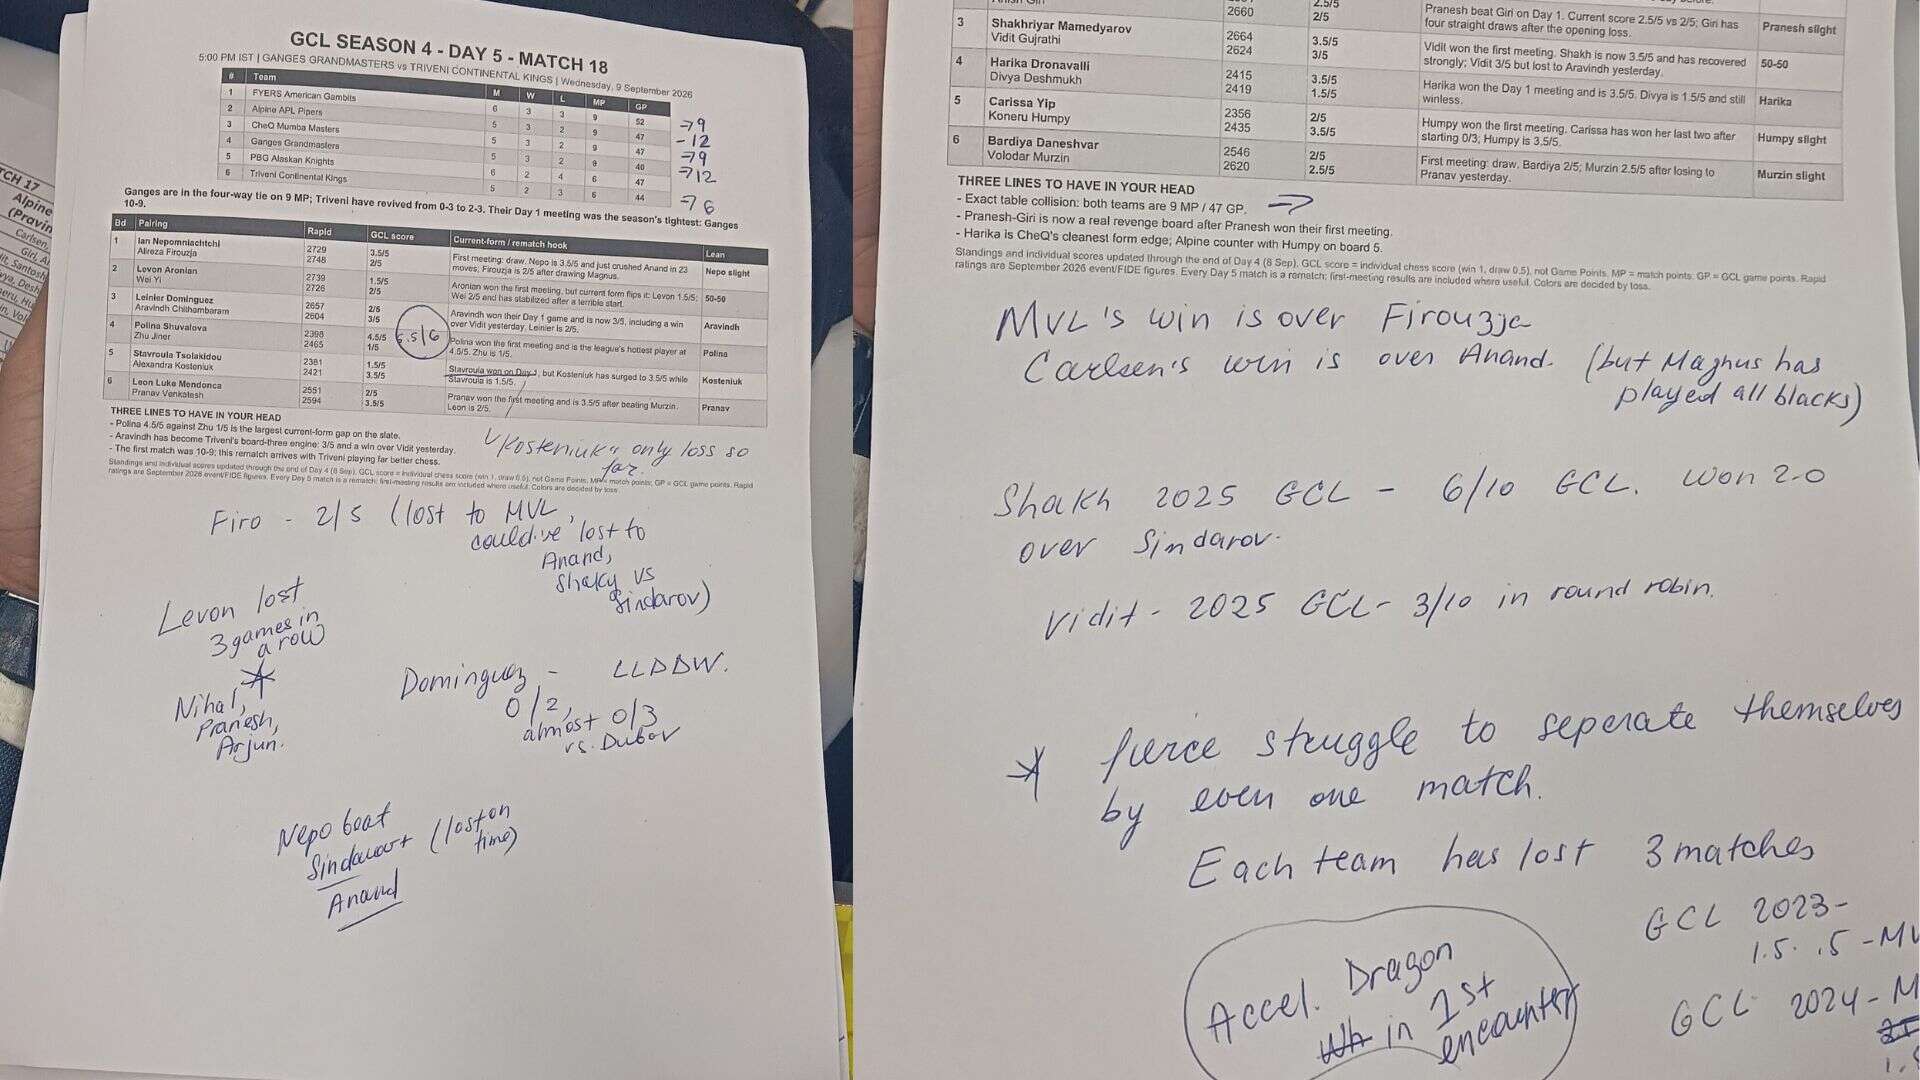 GCL SEASON 4 - DAY 5 - MATCH 18
5:00 PM IST | GANGES GRANDMASTERS vs TRIVENI CONTINENTAL KINGS | Wednesday, 9 September 2026
# Team M W L MP GP
1 FYERS American Gambits 6 3 3 9 52 → 9
2 Alpine APL Pipers 5 3 2 9 47 - 12
3 CheQ Mumba Masters 5 3 2 9 47 → 9
4 Ganges Grandmasters 5 3 2 9 40 → 12
5 PBG Alaskan Knights 6 2 4 6 47
6 Triveni Continental Kings 5 2 3 6 44 → 6
Ganges are in the four-way tie on 9 MP; Triveni have revived from 0-3 to 2-3. Their Day 1 meeting was the season's tightest: Ganges
10-9.
Bd Pairing Rapid GCL score Current-form / rematch hook Lean
1 Ian Nepomniachtchi 2729 3.5/5 First meeting: draw. Nepo is 3.5/5 and just crushed Anand in 23 Nepo slight
Alireza Firouzja 2748 2/5 moves; Firouzja is 2/5 after drawing Magnus.
2 Levon Aronian 2739 1.5/5 Aronian won the first meeting, but current form flips it: Levon 1.5/5; 50-50
Wei Yi 2726 2/5 Wei 2/5 and has stabilized after a terrible start.
3 Leinier Dominguez 2657 2/5 Aravindh won their Day 1 game and is now 3/5, including a win Aravindh
Aravindh Chithambaram 2604 3/5 over Vidit yesterday. Leinier is 2/5.
4 Polina Shuvalova 2398 4.5/5 Polina won the first meeting and is the league's hottest player at Polina
Zhu Jiner 2465 1/5 4.5/5. Zhu is 1/5.
5.5/6
5 Stavroula Tsolakidou 2381 1.5/5 Stavroula won on Day 1, but Kosteniuk has surged to 3.5/5 while Kosteniuk
Alexandra Kosteniuk 2421 3.5/5 Stavroula is 1.5/5.
6 Leon Luke Mendonca 2551 2/5 Pranav won the first meeting and is 3.5/5 after beating Murzin. Pranav
Pranav Venkatesh 2594 3.5/5 Leon is 2/5.
THREE LINES TO HAVE IN YOUR HEAD
- Polina 4.5/5 against Zhu 1/5 is the largest current-form gap on the slate.
- Aravindh has become Triveni's board-three engine: 3/5 and a win over Vidit yesterday.
- The first match was 10-9; this rematch arrives with Triveni playing far better chess.
Standings and individual scores updated through the end of Day 4 (8 Sep). GCL score = individual chess score (win 1, draw 0.5), not Game Points. MP = match points; GP = GCL game points. Rapid
ratings are September 2026 event/FIDE figures. Every Day 5 match is a rematch; first-meeting results are included where useful. Colors are decided by toss.
Kosteniuk's only loss so
far.
Firo - 2/5 (lost to MVL,
could've lost to
Anand,
shaky vs
Sindarov)
Levon lost
3 games in
a row
Nihal,
Pranesh,
Arjun.
Dominguez - LLDDW.
0/2,
almost 0/3
vs. Dubov
Nepo beat
Sindarov (lost on
time)
Anand
CH 17
Alpine
(Pravin
Carlsen,
2660 2.5/5 Pranesh beat Giri on Day 1. Current score 2.5/5 vs 2/5; Giri has Pranesh slight
2/5 four straight draws after the opening loss.
3 Shakhriyar Mamedyarov 2664 3.5/5 Vidit won the first meeting. Shakh is now 3.5/5 and has recovered 50-50
Vidit Gujrathi 2624 3/5 strongly; Vidit 3/5 but lost to Aravindh yesterday.
4 Harika Dronavalli 2415 3.5/5 Harika won the Day 1 meeting and is 3.5/5. Divya is 1.5/5 and still Harika
Divya Deshmukh 2419 1.5/5 winless.
5 Carissa Yip 2356 2/5 Humpy won the first meeting. Carissa has won her last two after Humpy slight
Koneru Humpy 2435 3.5/5 starting 0/3; Humpy is 3.5/5.
6 Bardiya Daneshvar 2546 2/5 First meeting: draw. Bardiya 2/5; Murzin 2.5/5 after losing to Murzin slight
Volodar Murzin 2620 2.5/5 Pranav yesterday.
THREE LINES TO HAVE IN YOUR HEAD
- Exact table collision: both teams are 9 MP / 47 GP. →
- Pranesh-Giri is now a real revenge board after Pranesh won their first meeting.
- Harika is CheQ's cleanest form edge; Alpine counter with Humpy on board 5.
Standings and individual scores updated through the end of Day 4 (8 Sep). GCL score = individual chess score (win 1, draw 0.5), not Game Points. MP = match points; GP = GCL game points. Rapid
ratings are September 2026 event/FIDE figures. Every Day 5 match is a rematch; first-meeting results are included where useful. Colors are decided by toss.
MVL's win is over Firouzja
Carlsen's win is over Anand. (but Magnus has
played all blacks)
Shakh 2025 GCL - 6/10 GCL. Won 2-0
over Sindarov.
Vidit - 2025 GCL - 3/10 in round robin.
* fierce struggle to seperate themselves
by even one match.
Each team has lost 3 matches
GCL 2023-
1.5. .5 - MV
GCL 2024 - M
Accel. Dragon
in 1st
encounter